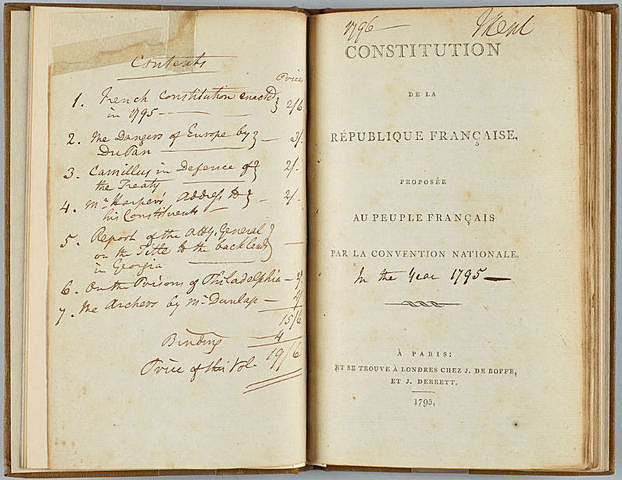 Contents
Price
1. French Constitution enacted
in 1795 — 2/6
2. The Dangers of Europe by
DuPan — 2/.
3. Camillus in Defence of
the Treaty 2/.
4. Mr. Harper's Address to
his Constituents — 2/.
5. Report of the atty. General
on the Title to the back land
in Georgia —
6. On the Prisons of Philadelphia —
7. The Archers by Mr Dunlap —
15/6
Binding 4
Price of this Vol. 19/6
1796 —
CONSTITUTION
DE LA
RÉPUBLIQUE FRANÇAISE,
PROPOSÉE
AU PEUPLE FRANÇAIS
PAR LA CONVENTION NATIONALE.
In the Year 1795 —
À PARIS:
ET SE TROUVE À LONDRES CHEZ J. DE BOFFE,
ET J. DEBRETT.
1795.